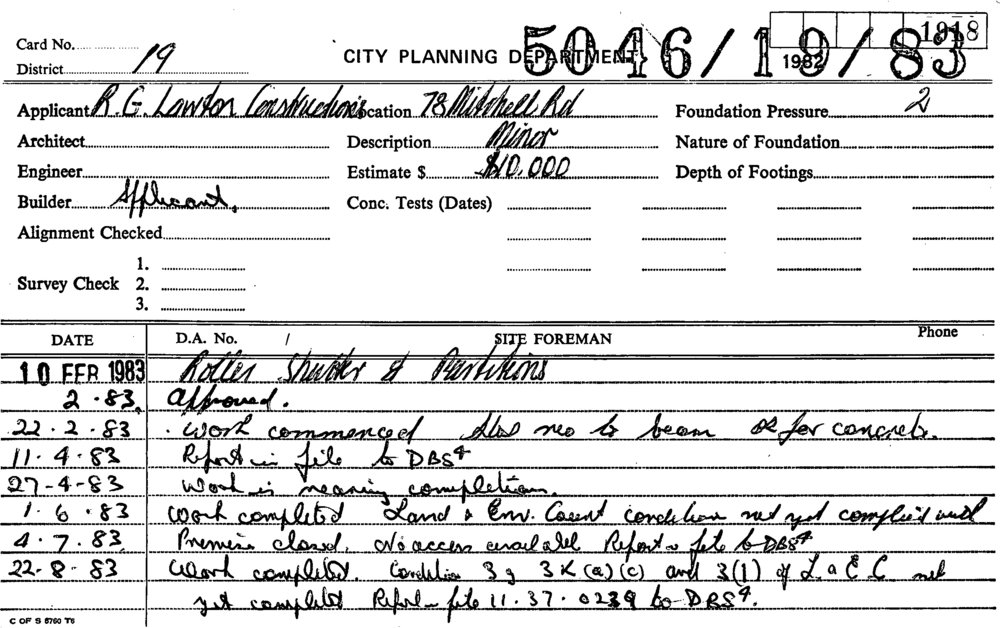 1918
Card No. 19 CITY PLANNING DEPARTMENT 5046/19/83
District 1982
Applicant R.G. Lawton Constructions Location 78 Mitchell Rd Foundation Pressure 2
Architect Description Minor Nature of Foundation
Engineer Estimate $ $10,000 Depth of Footings
Builder Applicant. Conc. Tests (Dates)
Alignment Checked
1.
Survey Check 2.
3.
DATE D.A. No. / SITE FOREMAN Phone
10 FEB 1983 Roller Shutter & Partitions
2.83. Approved.
22.2.83 . Work commenced Also reo to beam ok for concrete.
11.4.83 Report in file to DBS4
27-4-83 Work is nearing completion.
1.6.83 Work completed Land & Env. Court condition not yet complied with
4.7.83. Premise closed. No access available Report in file to DBS4
22-8-83 Work completed. Condition 3g 3K (a) (c) and 3(1) of L a E C not
yet completed Report in file 11.37.0239 to DBS4.
C OF S 5760 T5